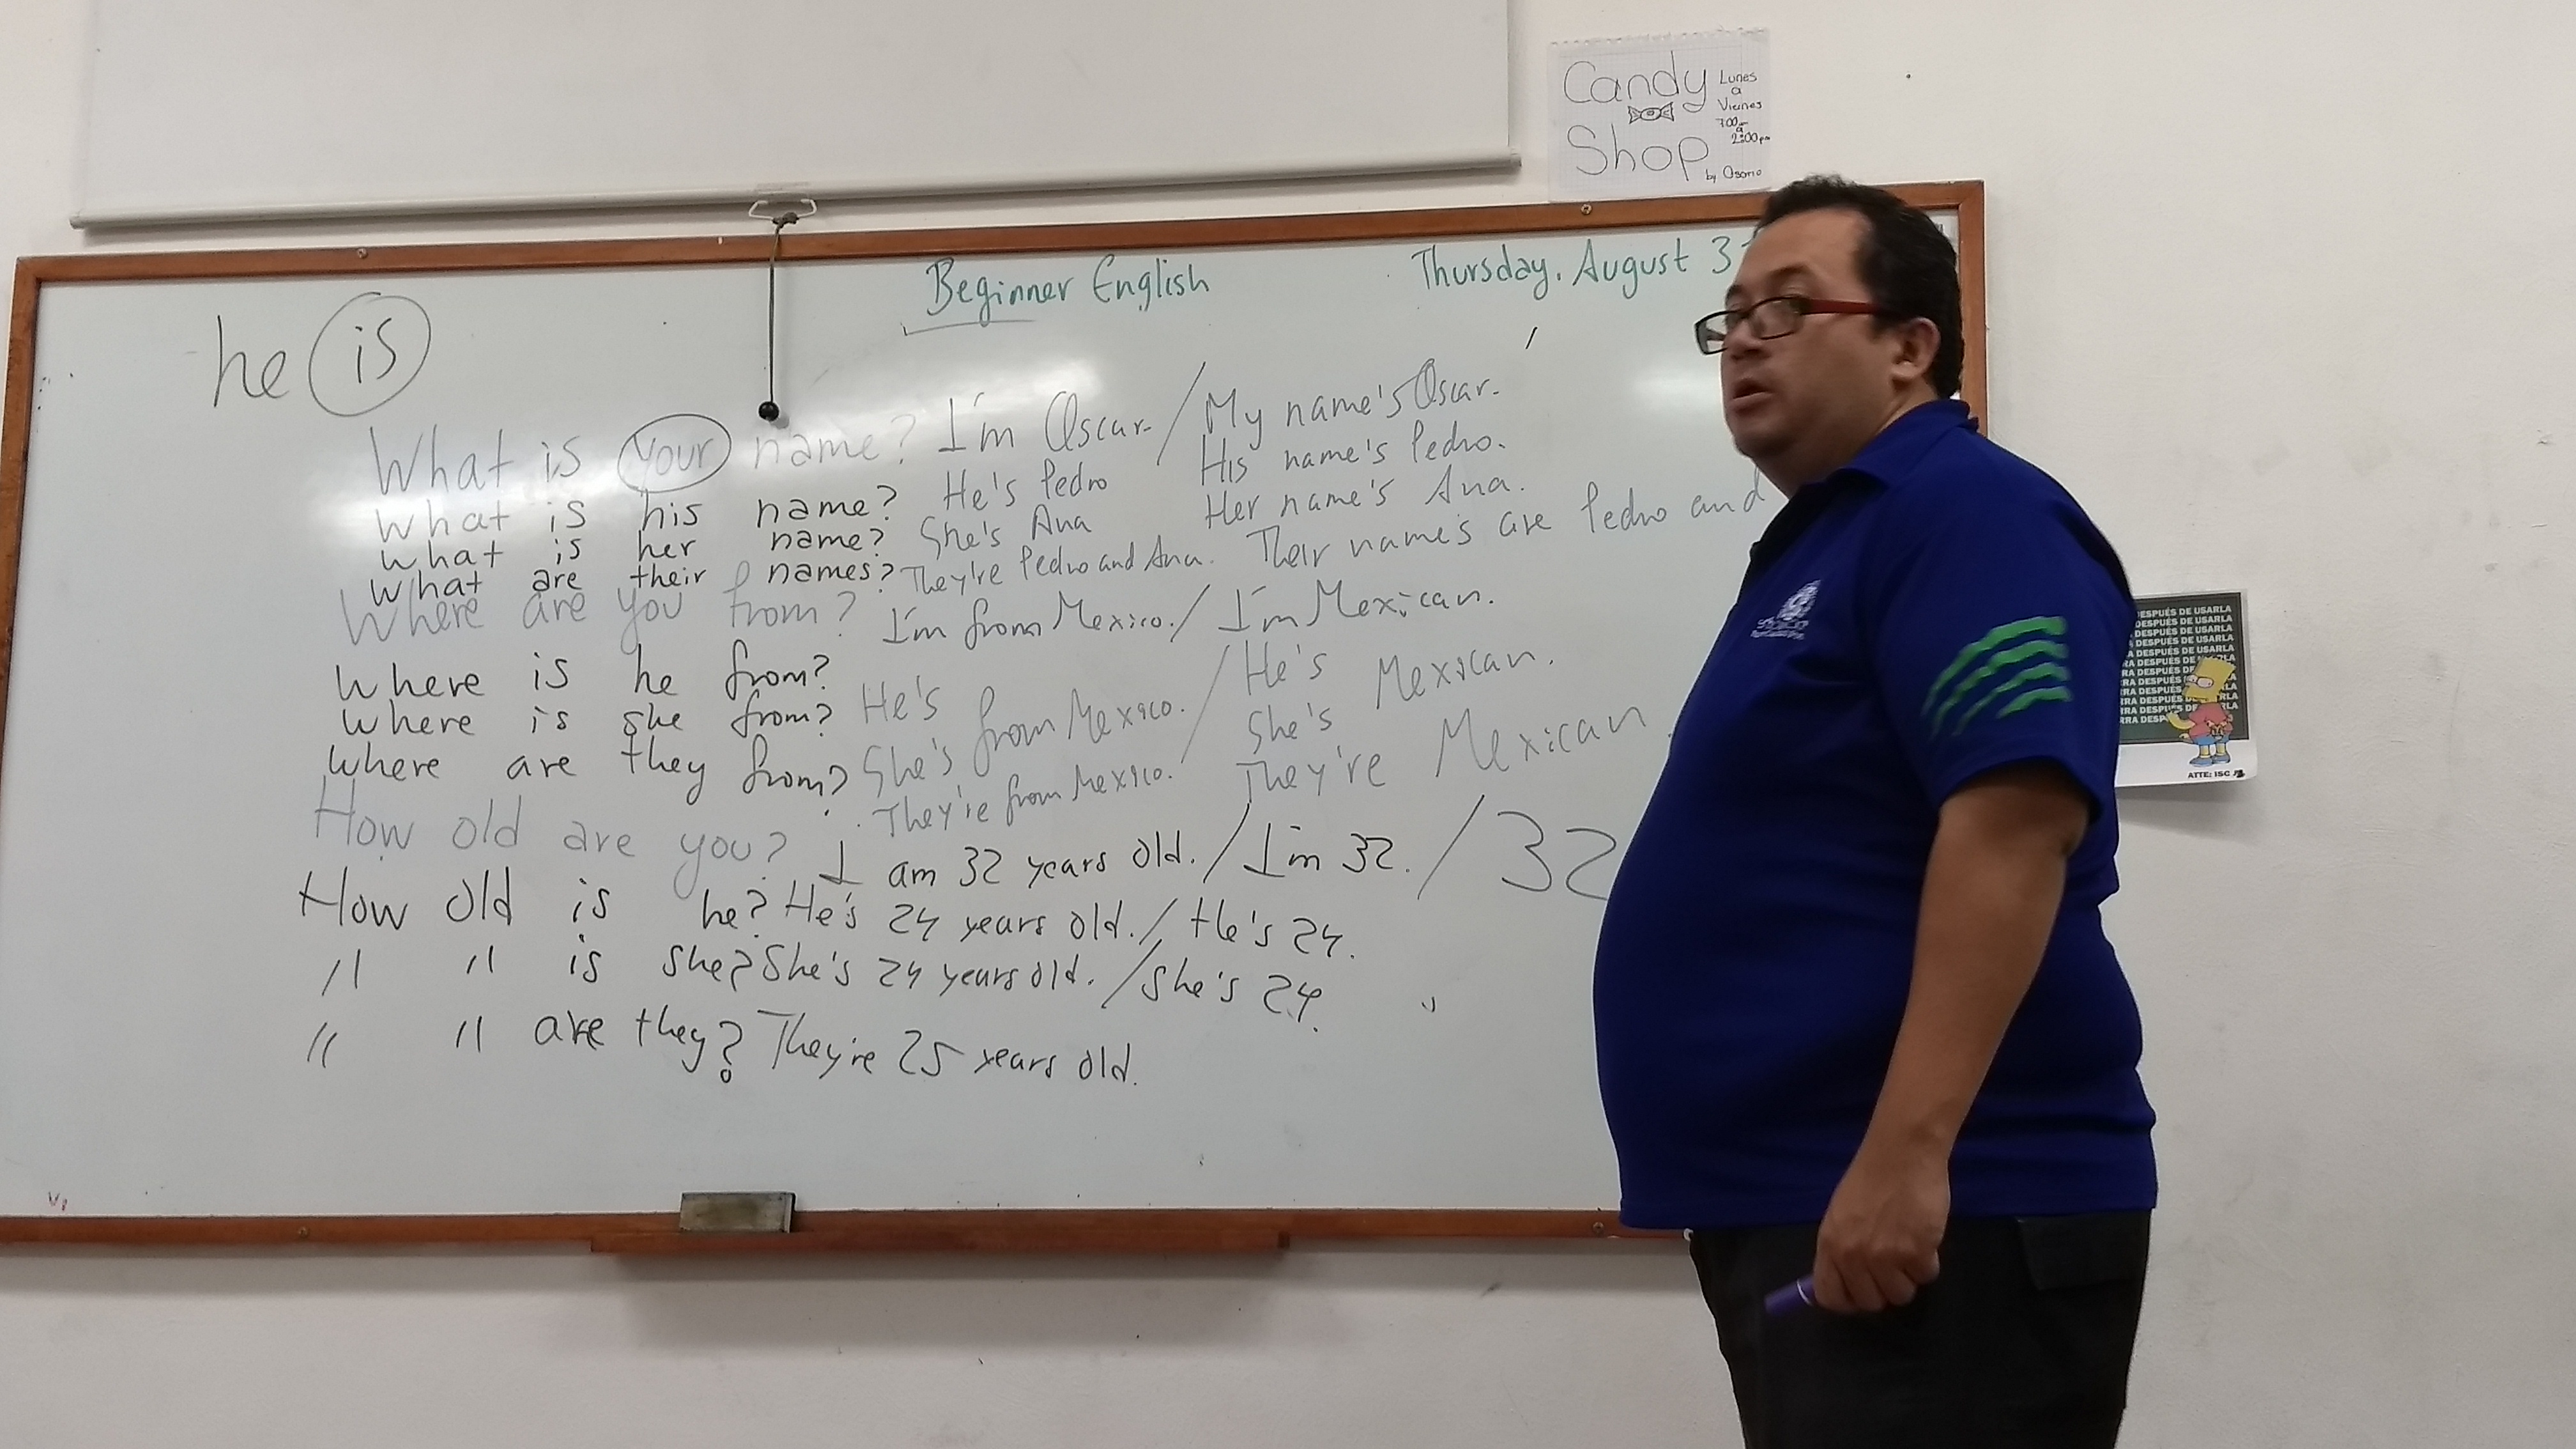 Candy
Shop
Lunes
a
Viernes
7:00
a
2:00pm
by Osorio
Beginner English
Thursday, August 3
he is
What is your name? I'm Oscar. / My name's Oscar.
What is his name? He's Pedro His name's Pedro.
What is her name? She's Ana Her name's Ana.
What are their names? They're Pedro and Ana. Their name's are Pedro and
Where are you from? I'm from Mexico. / I'm Mexican.
Where is he from? He's from Mexico. / He's Mexican.
Where is she from? She's She's
Where are they from? They're from Mexico. They're Mexican.
How old are you? I am 32 years old. / I'm 32. / 32
How old is he? He's 24 years old. / He's 24.
" " is she? She's 24 years old. / She's 24.
" " are they? They're 25 years old.
DESPUÉS DE USARLA
DESPUÉS DE USARLA
DESPUÉS DE USARLA
DESPUÉS DE USARLA
RA DESPUÉS DE USARLA
RA DESPUÉS DE
RA DESPUÉS
RA DESPUÉS
RA DESPUÉS DE RLA
RA DESP
ATTE: ISC